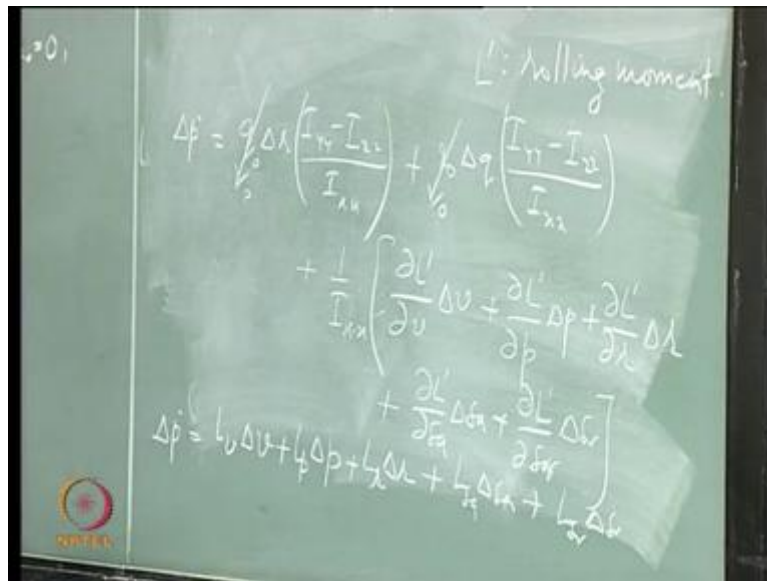 =0,
L': rolling moment.
Δṗ = q₀ Δr (I_yy - I_zz / I_xx) + r₀ Δq (I_yy - I_zz / I_xx)
+ 1/I_xx [ ∂L'/∂v Δv + ∂L'/∂p Δp + ∂L'/∂r Δr
+ ∂L'/∂δa Δδa + ∂L'/∂δr Δδr ]
Δṗ = L_v Δv + L_p Δp + L_r Δr + L_δa Δδa + L_δr Δδr
NPTEL